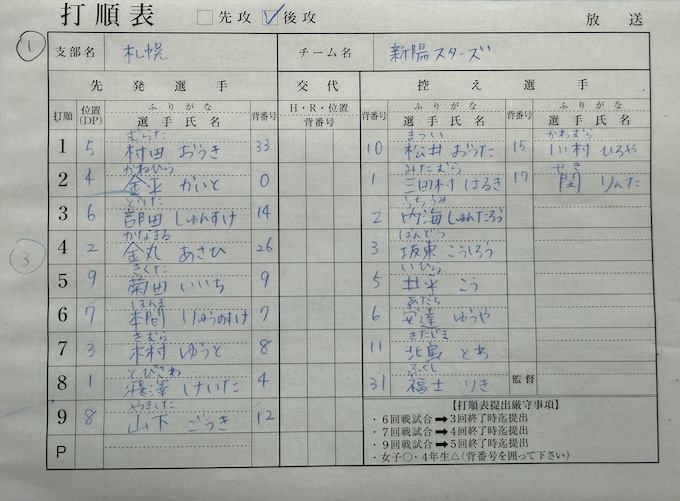 打順表 □先攻 ☑後攻 放送
① 支部名 札幌 チーム名 新陽スターズ
先発選手 交代 控え選手
打順 位置(DP) ふりがな 選手氏名 背番号 H・R・位置 背番号 背番号 ふりがな 選手氏名 背番号 ふりがな 選手氏名
むらた まつい かわむら
1 5 村田 おうき 33 10 松井 おうた 15 川村 ひろや
かねひら みたむら せき
2 4 金平 かいと 0 1 三田村 はるき 17 関 りんた
とりた うちうみ
3 6 部田 しゅんすけ 14 2 内海 しゅんたろう
かなまる ばんどう
③ 4 2 金丸 あさひ 26 3 坂東 こうしろう
きくた いひら
5 9 菊田 いいち 9 5 井平 こう
ほんま あだち
6 7 本間 りゅうのすけ 7 6 安達 ゆうや
きむら きたじま
7 3 木村 ゆうと 8 11 北島 とあ
とびさわ ふくし
8 1 飛澤 けいた 4 31 福士 りき 監督
やました
9 8 山下 ごうき 12
P
【打順表提出厳守事項】
・6回戦試合➡3回終了時迄提出
・7回戦試合➡4回終了時迄提出
・9回戦試合➡5回終了時迄提出
・女子○・4年生△(背番号を囲って下さい)